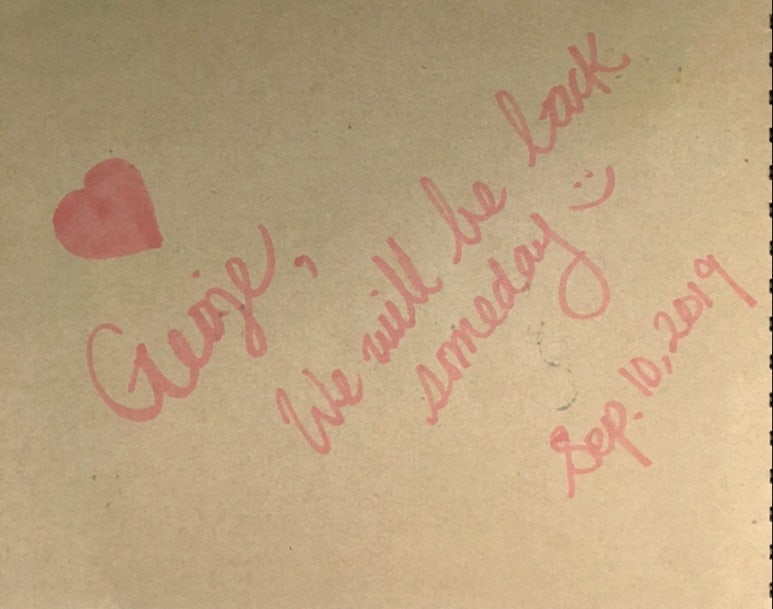 George,
We will be back
someday :)
Sep. 10, 2019